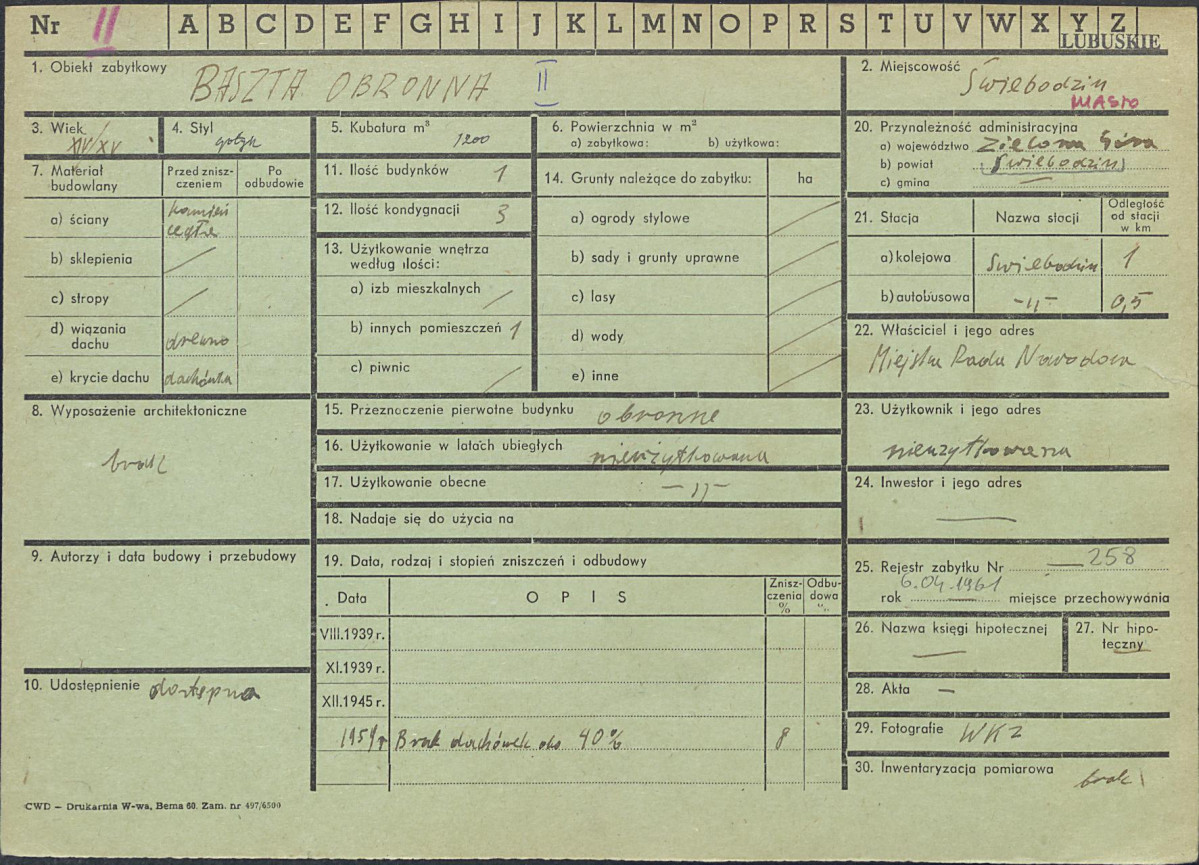 Nr II A B C D E F G H I J K L M N O P R S T U V W X Y Z
LUBUSKIE
1. Obiekt zabytkowy BASZTA OBRONNA II
2. Miejscowość Świebodzin
MIASTO
3. Wiek XIV/XV
4. Styl gotyk
5. Kubatura m³ 1200
6. Powierzchnia w m²
a) zabytkowa: b) użytkowa:
20. Przynależność administracyjna
a) województwo Zielona Góra
b) powiat Świebodzin
c) gmina —
7. Materiał budowlany
Przed zniszczeniem
Po odbudowie
a) ściany kamień cegła
b) sklepienia /
c) stropy /
d) wiązania dachu drewno
e) krycie dachu dachówka
11. Ilość budynków 1
12. Ilość kondygnacji 3
13. Użytkowanie wnętrza
według ilości:
a) izb mieszkalnych /
b) innych pomieszczeń 1
c) piwnic /
14. Grunty należące do zabytku: ha
a) ogrody stylowe /
b) sady i grunty uprawne /
c) lasy /
d) wody /
e) inne /
21. Stacja
Nazwa stacji
Odległość od stacji w km
a) kolejowa Świebodzin 1
b) autobusowa -"- 0,5
22. Właściciel i jego adres
Miejska Rada Narodowa
8. Wyposażenie architektoniczne
brak
15. Przeznaczenie pierwotne budynku obronne
16. Użytkowanie w latach ubiegłych nieużytkowana
17. Użytkowanie obecne -"-
18. Nadaje się do użycia na
23. Użytkownik i jego adres
nieużytkowana
24. Inwestor i jego adres
—
9. Autorzy i data budowy i przebudowy
19. Data, rodzaj i stopień zniszczeń i odbudowy
Data OPIS Zniszczenia % Odbudowa %
VIII.1939 r.
XI.1939 r.
XII.1945 r.
1959 r Brak dachówek do 40% 8
25. Rejestr zabytku Nr — 258
6.04.1961
rok — miejsce przechowywania
26. Nazwa księgi hipotecznej
—
27. Nr hipoteczny
—
10. Udostępnienie dostępna
28. Akta —
29. Fotografie WKZ
30. Inwentaryzacja pomiarowa
brak
CWD – Drukarnia W-wa, Bema 60. Zam. nr 497/6500